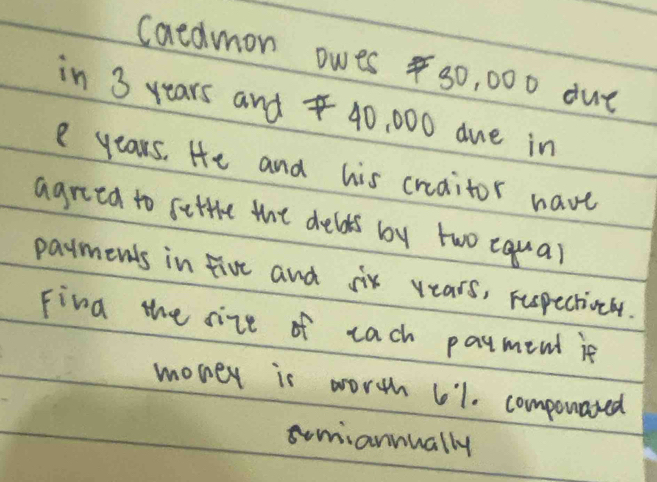 Caedmon owes ₱30,000 due
in 3 years and ₱ 40,000 due in
8 years. He and his creditor have
agreed to settle the debts by two equal
payments in five and six years, respectively.
Find the size of each payment if
money is worth 6% compounded
semiannually